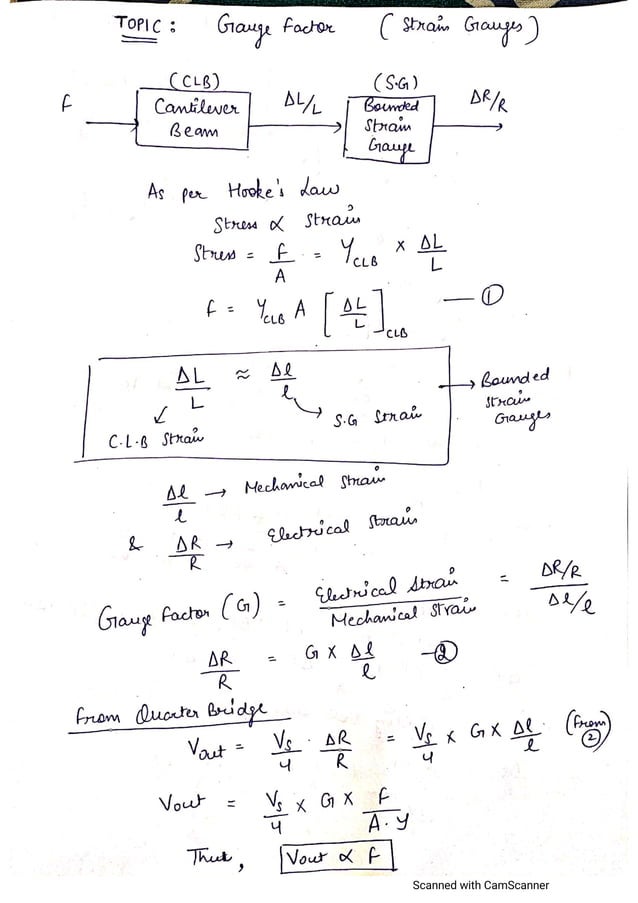 TOPIC : Gauge Factor ( Strain Gauges )
(CLB) (S.G)
F Cantilever Beam ΔL/L Bounded Strain Gauge ΔR/R
As per Hooke's Law
Stress ∝ Strain
Stress = F/A = Y_CLB × ΔL/L
F = Y_CLB A [ΔL/L]_CLB — ①
ΔL/L ≈ Δl/l → Bounded Strain Gauges
C.L.B Strain S.G Strain
Δl/l → Mechanical Strain
& ΔR/R → Electrical Strain
Gauge Factor (G) = Electrical Strain / Mechanical Strain = ΔR/R / Δl/l
ΔR/R = G × Δl/l —②
From Quarter Bridge
Vout = Vs/4 . ΔR/R = Vs/4 × G × Δl/l (From ②)
Vout = Vs/4 × G × F/A.Y
Thus, Vout ∝ F
Scanned with CamScanner